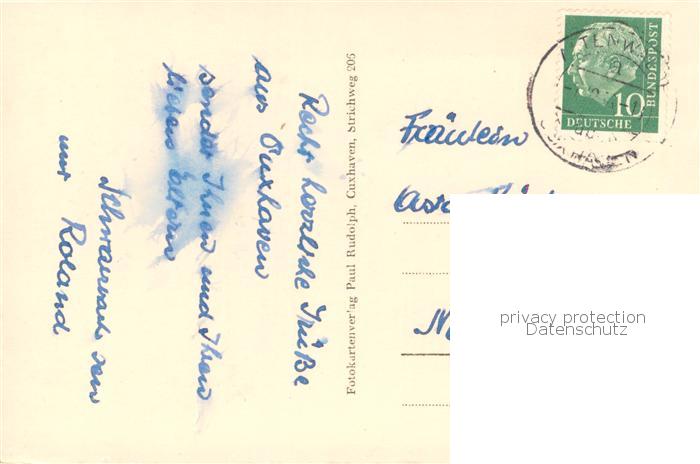 Recht herzliche Grüße
aus Cuxhaven
sendet Ihnen und Ihren
lieben Eltern
und Roland
Fotokartenverlag Paul Rudolph, Cuxhaven, Strichweg 205
Fräulein
10
DEUTSCHE
BUNDESPOST
privacy protection
Datenschutz